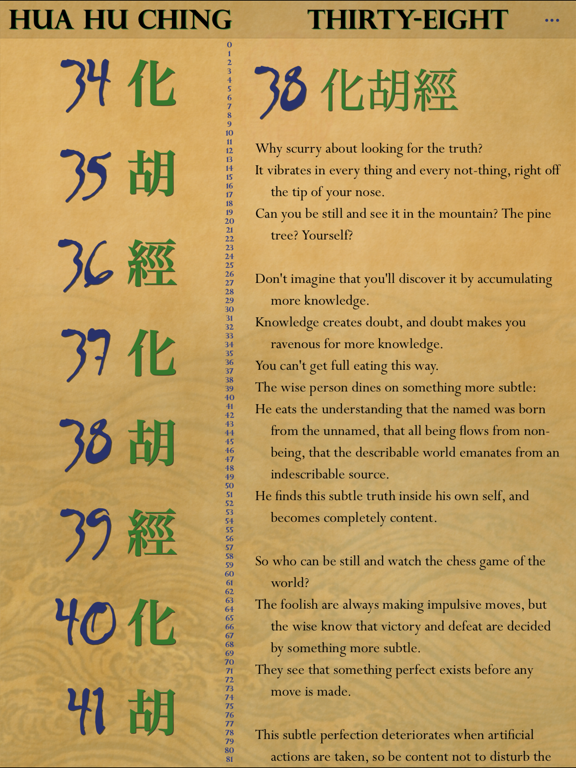 HUA HU CHING
34 化
35 胡
36 經
37 化
38 胡
39 經
40 化
41 胡
0
1
2
3
4
5
6
7
8
9
10
11
12
13
14
15
16
17
18
19
20
21
22
23
24
25
26
27
28
29
30
31
32
33
34
35
36
37
38
39
40
41
42
43
44
45
46
47
48
49
50
51
52
53
54
55
56
57
58
59
60
61
62
63
64
65
66
67
68
69
70
71
72
73
74
75
76
77
78
79
80
81
THIRTY-EIGHT ...
38 化胡經
Why scurry about looking for the truth?
It vibrates in every thing and every not-thing, right off
the tip of your nose.
Can you be still and see it in the mountain? The pine
tree? Yourself?
Don't imagine that you'll discover it by accumulating
more knowledge.
Knowledge creates doubt, and doubt makes you
ravenous for more knowledge.
You can't get full eating this way.
The wise person dines on something more subtle:
He eats the understanding that the named was born
from the unnamed, that all being flows from non-
being, that the describable world emanates from an
indescribable source.
He finds this subtle truth inside his own self, and
becomes completely content.
So who can be still and watch the chess game of the
world?
The foolish are always making impulsive moves, but
the wise know that victory and defeat are decided
by something more subtle.
They see that something perfect exists before any
move is made.
This subtle perfection deteriorates when artificial
actions are taken, so be content not to disturb the